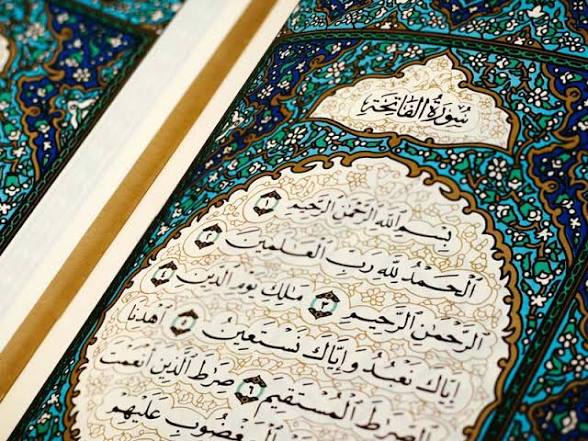 سُورَةُ الفَاتِحَةِ
بِسْمِ اللَّهِ الرَّحْمَٰنِ الرَّحِيمِ ١
الْحَمْدُ لِلَّهِ رَبِّ الْعَٰلَمِينَ ٢
الرَّحْمَٰنِ الرَّحِيمِ ٣ مَٰلِكِ يَوْمِ الدِّينِ ٤
إِيَّاكَ نَعْبُدُ وَإِيَّاكَ نَسْتَعِينُ ٥ اهْدِنَا
الصِّرَٰطَ الْمُسْتَقِيمَ ٦ صِرَٰطَ الَّذِينَ أَنْعَمْتَ
الْمَغْضُوبِ عَلَيْهِمْ